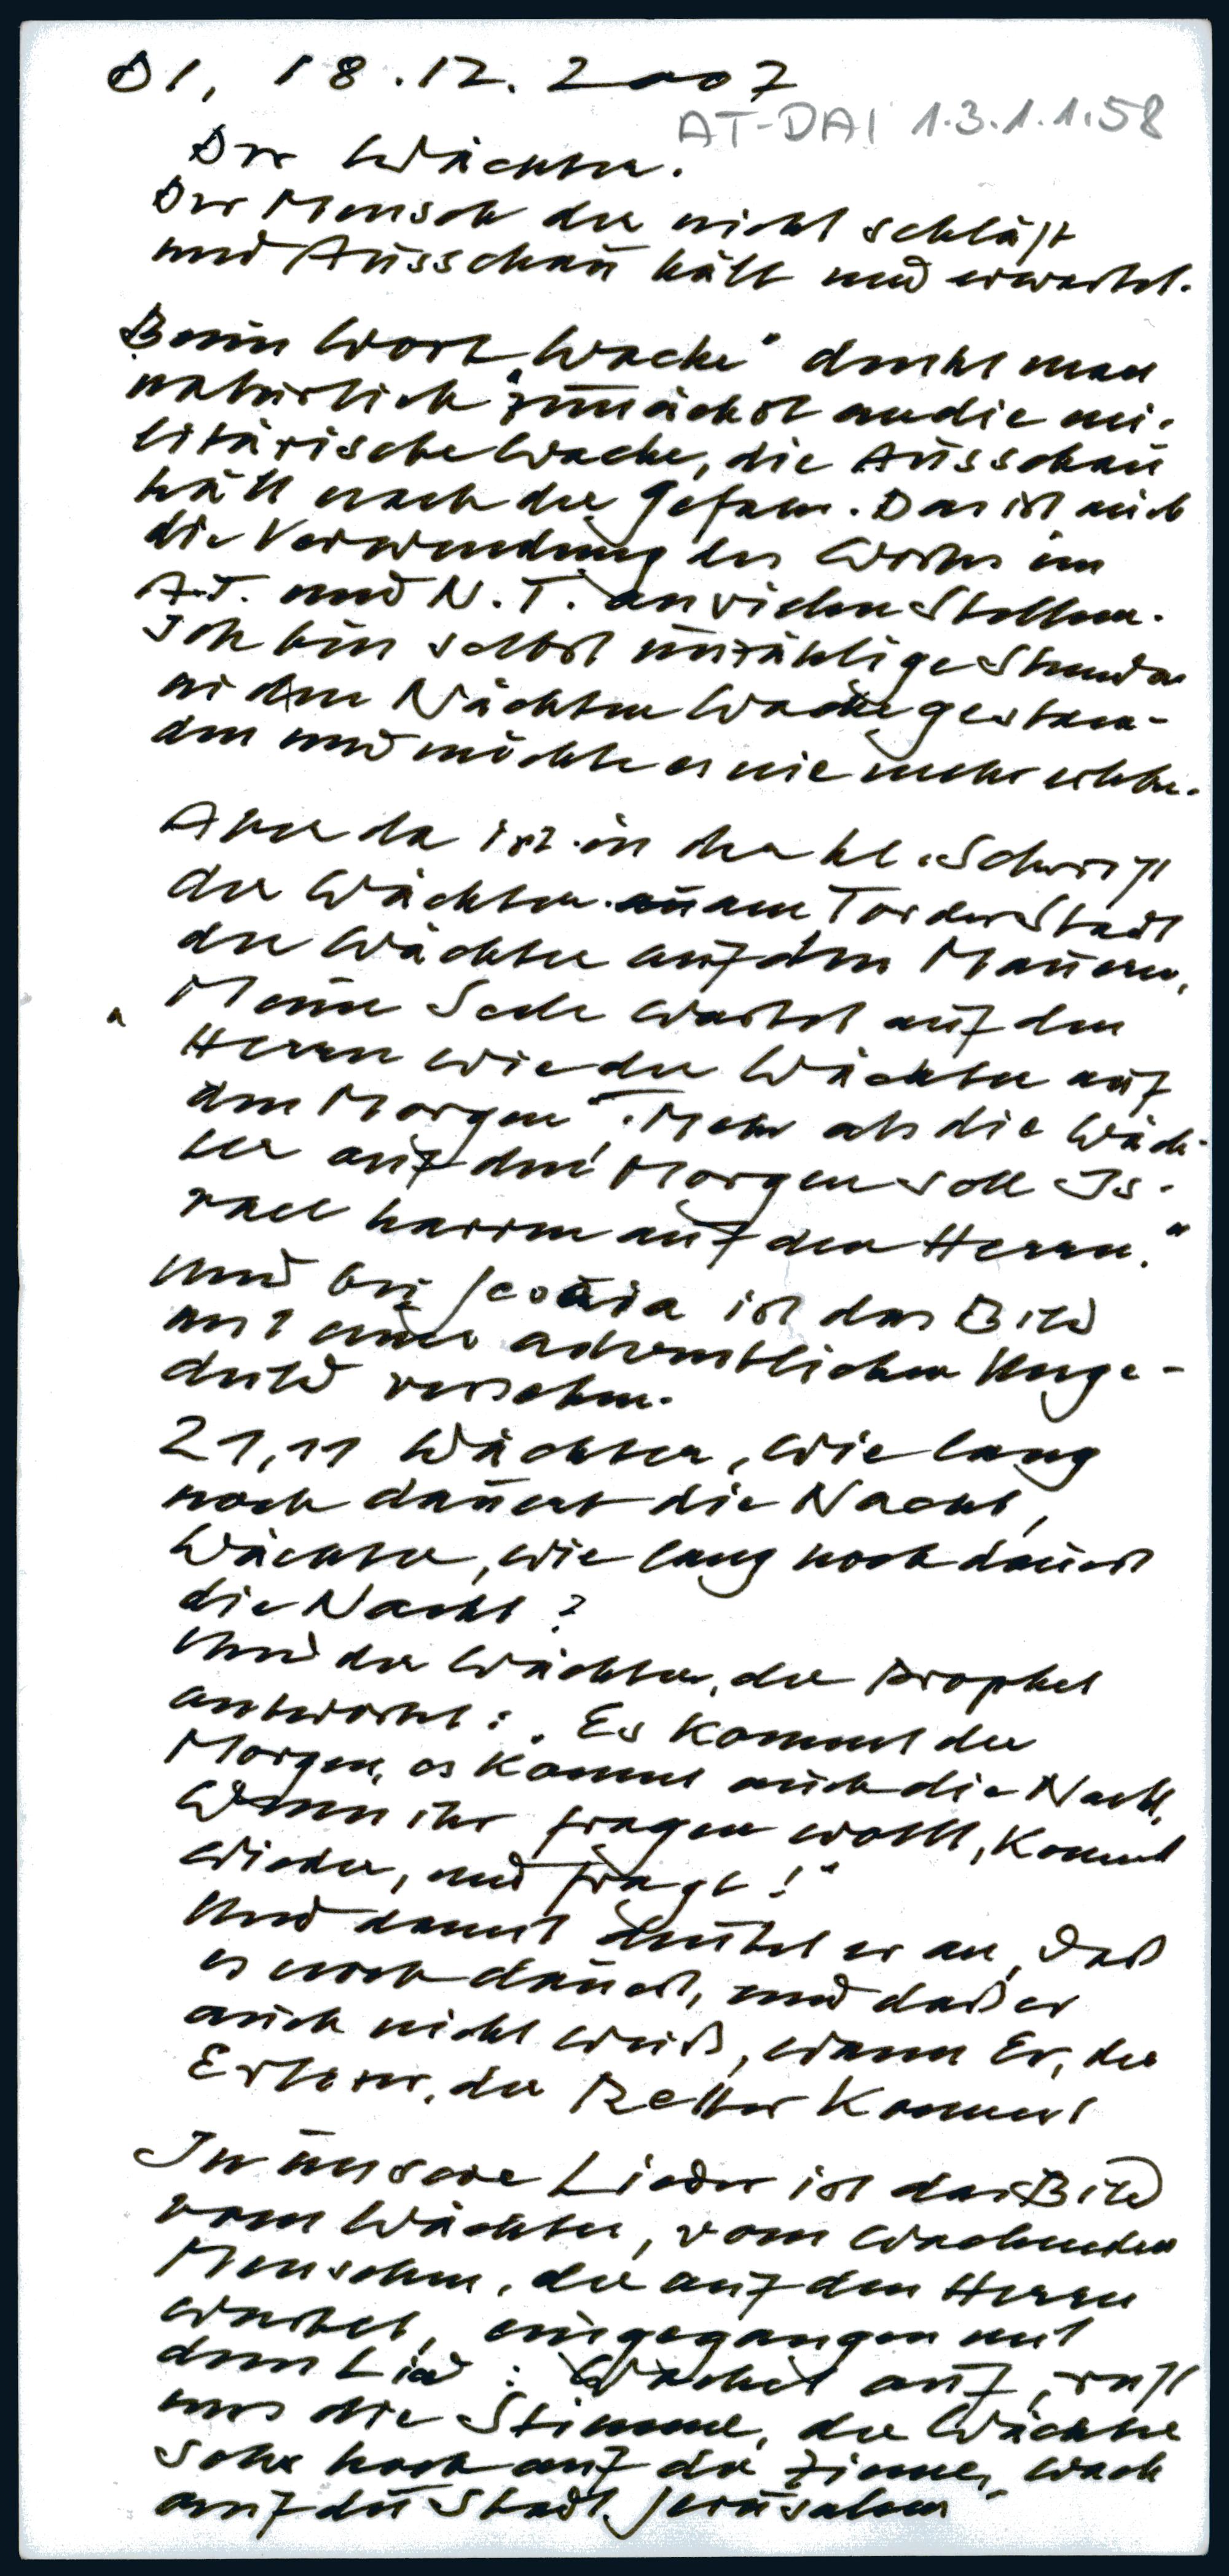 DI, 18.12.2007
AT-DAI 1.3.1.1.58
Der Wächter.
Der Mensch der nicht schläft
und Ausschau hält und erwartet.
Beim Wort „Wache" denkt man
natürlich zunächst an die mi-
litärische Wache, die Ausschau
hält nach der Gefahr. Das ist auch
die Verwendung des Wortes im
A.T. und N.T. an vielen Stellen.
Ich bin selbst unzählige Stunden
in den Nächten Wache gestan-
den und möchte es nie mehr erleben.
Aber da ist in der hl. Schrift
der Wächter am Tor der Stadt
der Wächter auf den Mauern,
"Meine Seele wartet auf den
Herrn wie der Wächter auf
den Morgen". "Mehr als die Wäch-
ter auf den Morgen soll Is-
rael harren auf den Herrn."
Und bei Jesaia ist das Bild
mit einer adventlichen Unge-
duld versehen.
21,11 Wächter, wie lang
noch dauert die Nacht,
Wächter, wie lang noch dauert
die Nacht?
Und der Wächter, der Prophet
antwortet: „Es kommt der
Morgen, es kommt auch die Nacht,
Wenn ihr fragen wollt, kommt
wieder, und fragt!"
Und damit deutet er an, daß
es noch dauert, und daß er
auch nicht weiß, wann Er, der
Erlöser, der Retter kommt
In unsere Lieder ist das Bild
vom Wächter, vom wachenden
Menschen, der auf den Herrn
wartet, eingegangen mit
dem Lied: "Wachet auf, ruft
uns die Stimme, der Wächter
sehr hoch auf der Zinne, wach
auf du Stadt Jerusalem"